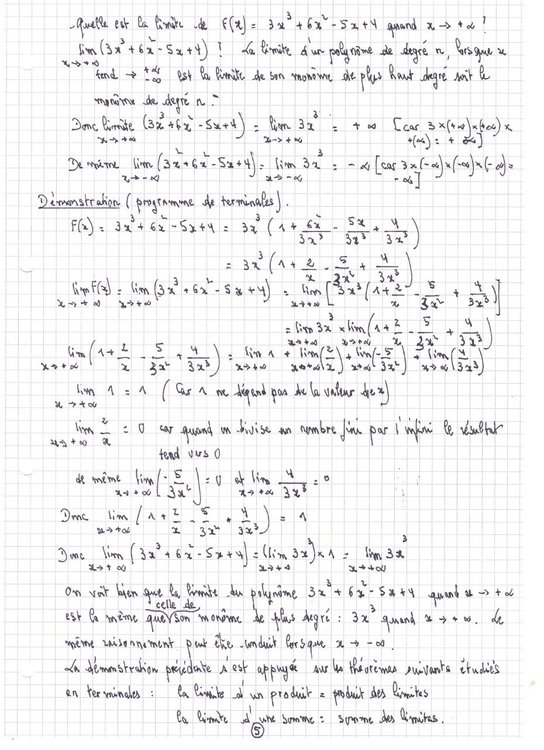 - Quelle est la limite de F(x) = 3x³ + 6x² - 5x + 4 quand x → + ∞ ?
lim (3x³ + 6x² - 5x + 4) ? La limite d'un polynôme de degré n, lorsque x
x → + ∞
tend → +∞ est la limite de son monôme de plus haut degré soit le
-∞
monôme de degré n."
Donc limite (3x³ + 6x² - 5x + 4) = lim 3x³ = + ∞ [car 3 × (+∞) × (+∞) ×
x → + ∞ x → + ∞ +(∞) = + ∞]
De même lim (3x³ + 6x² - 5x + 4) = lim 3x³ = - ∞ [car 3 × (-∞) × (-∞) × (-∞) =
x → - ∞ x → - ∞ - ∞]
Démonstration (programme de terminales).
F(x) = 3x³ + 6x² - 5x + 4 = 3x³ (1 + 6x²/3x³ - 5x/3x³ + 4/3x³)
= 3x³ (1 + 2/x - 5/3x² + 4/3x³)
lim F(x) = lim (3x³ + 6x² - 5x + 4) = lim [3x³ (1 + 2/x - 5/3x² + 4/3x³)]
x → + ∞ x → + ∞ x → + ∞
= lim 3x³ × lim (1 + 2/x - 5/3x² + 4/3x³)
x → + ∞ x → + ∞
lim (1 + 2/x - 5/3x² + 4/3x³) = lim 1 + lim (2/x) + lim (-5/3x²) + lim (4/3x³)
x → + ∞ x → + ∞ x → + ∞ x → ∞ x → ∞
lim 1 = 1 (Car 1 ne dépend pas de la valeur de x)
x → + ∞
lim 2/x = 0 car quand on divise un nombre fini par l'infini le résultat
x → + ∞
tend vers 0
de même lim (-5/3x²) = 0 et lim 4/3x³ = 0
x → + ∞ x → + ∞
Donc lim (1 + 2/x - 5/3x² + 4/3x³) = 1
x → + ∞
Donc lim (3x³ + 6x² - 5x + 4) = (lim 3x³) × 1 = lim 3x³
x → + ∞ x → + ∞ x → + ∞
On voit bien que la limite du polynôme 3x³ + 6x² - 5x + 4 quand x → + ∞
celle de
est la même que son monôme de plus degré : 3x³ quand x → + ∞. Le
même raisonnement peut être conduit lorsque x → - ∞.
La démonstration précédente s'est appuyée sur les théorèmes suivants étudiés
en terminales : la limite d'un produit = produit des limites
la limite d'une somme = somme des limites.
5